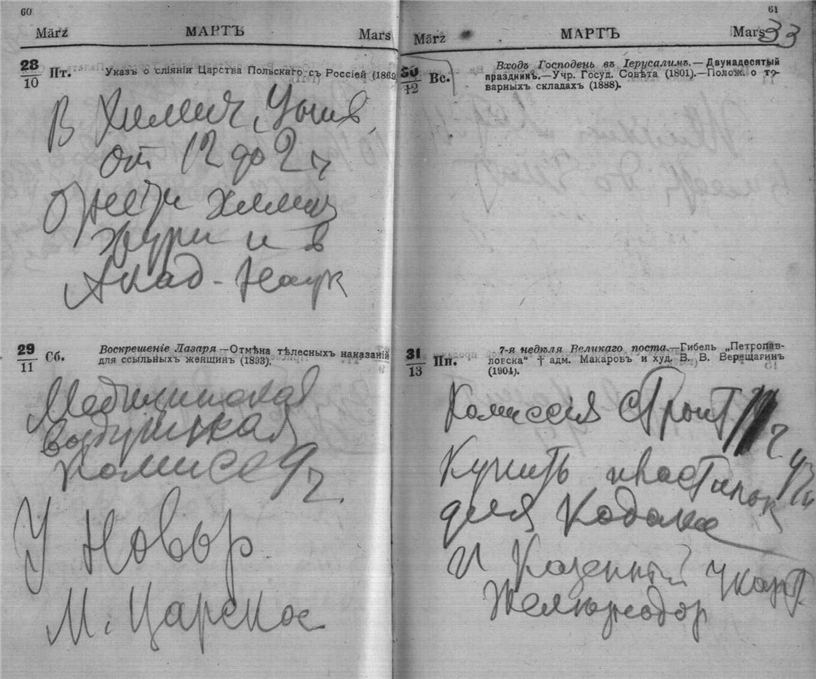 60
März МАРТЪ Mars
28/10 Пт. Указъ о сліяніи Царства Польскаго съ Россіей (1863
В Химич. Унив.
от 12 до 2 ч
химич
журн и в
Акад - Наук
29/11 Сб. Воскрешеніе Лазаря.—Отмѣна тѣлесныхъ наказаній
для ссыльныхъ женщинъ (1893).
Медицинская
комисс 9 ч.
У Новор
М. Царское
61
März МАРТЪ Mars 33
30/12 Вс. Входъ Господень въ Іерусалимъ.—Двунадесятый
праздникъ.—Учр. Госуд. Совѣта (1801).—Полож. о то-
варныхъ складахъ (1888).
31/13 Пн. 7-я недѣля Великаго поста.—Гибель „Петропав-
ловска“ † адм. Макаровъ и худ. В. В. Верещагинъ
(1904).
Комиссія строит
Купить пластинок
для Кодака
и Казенный